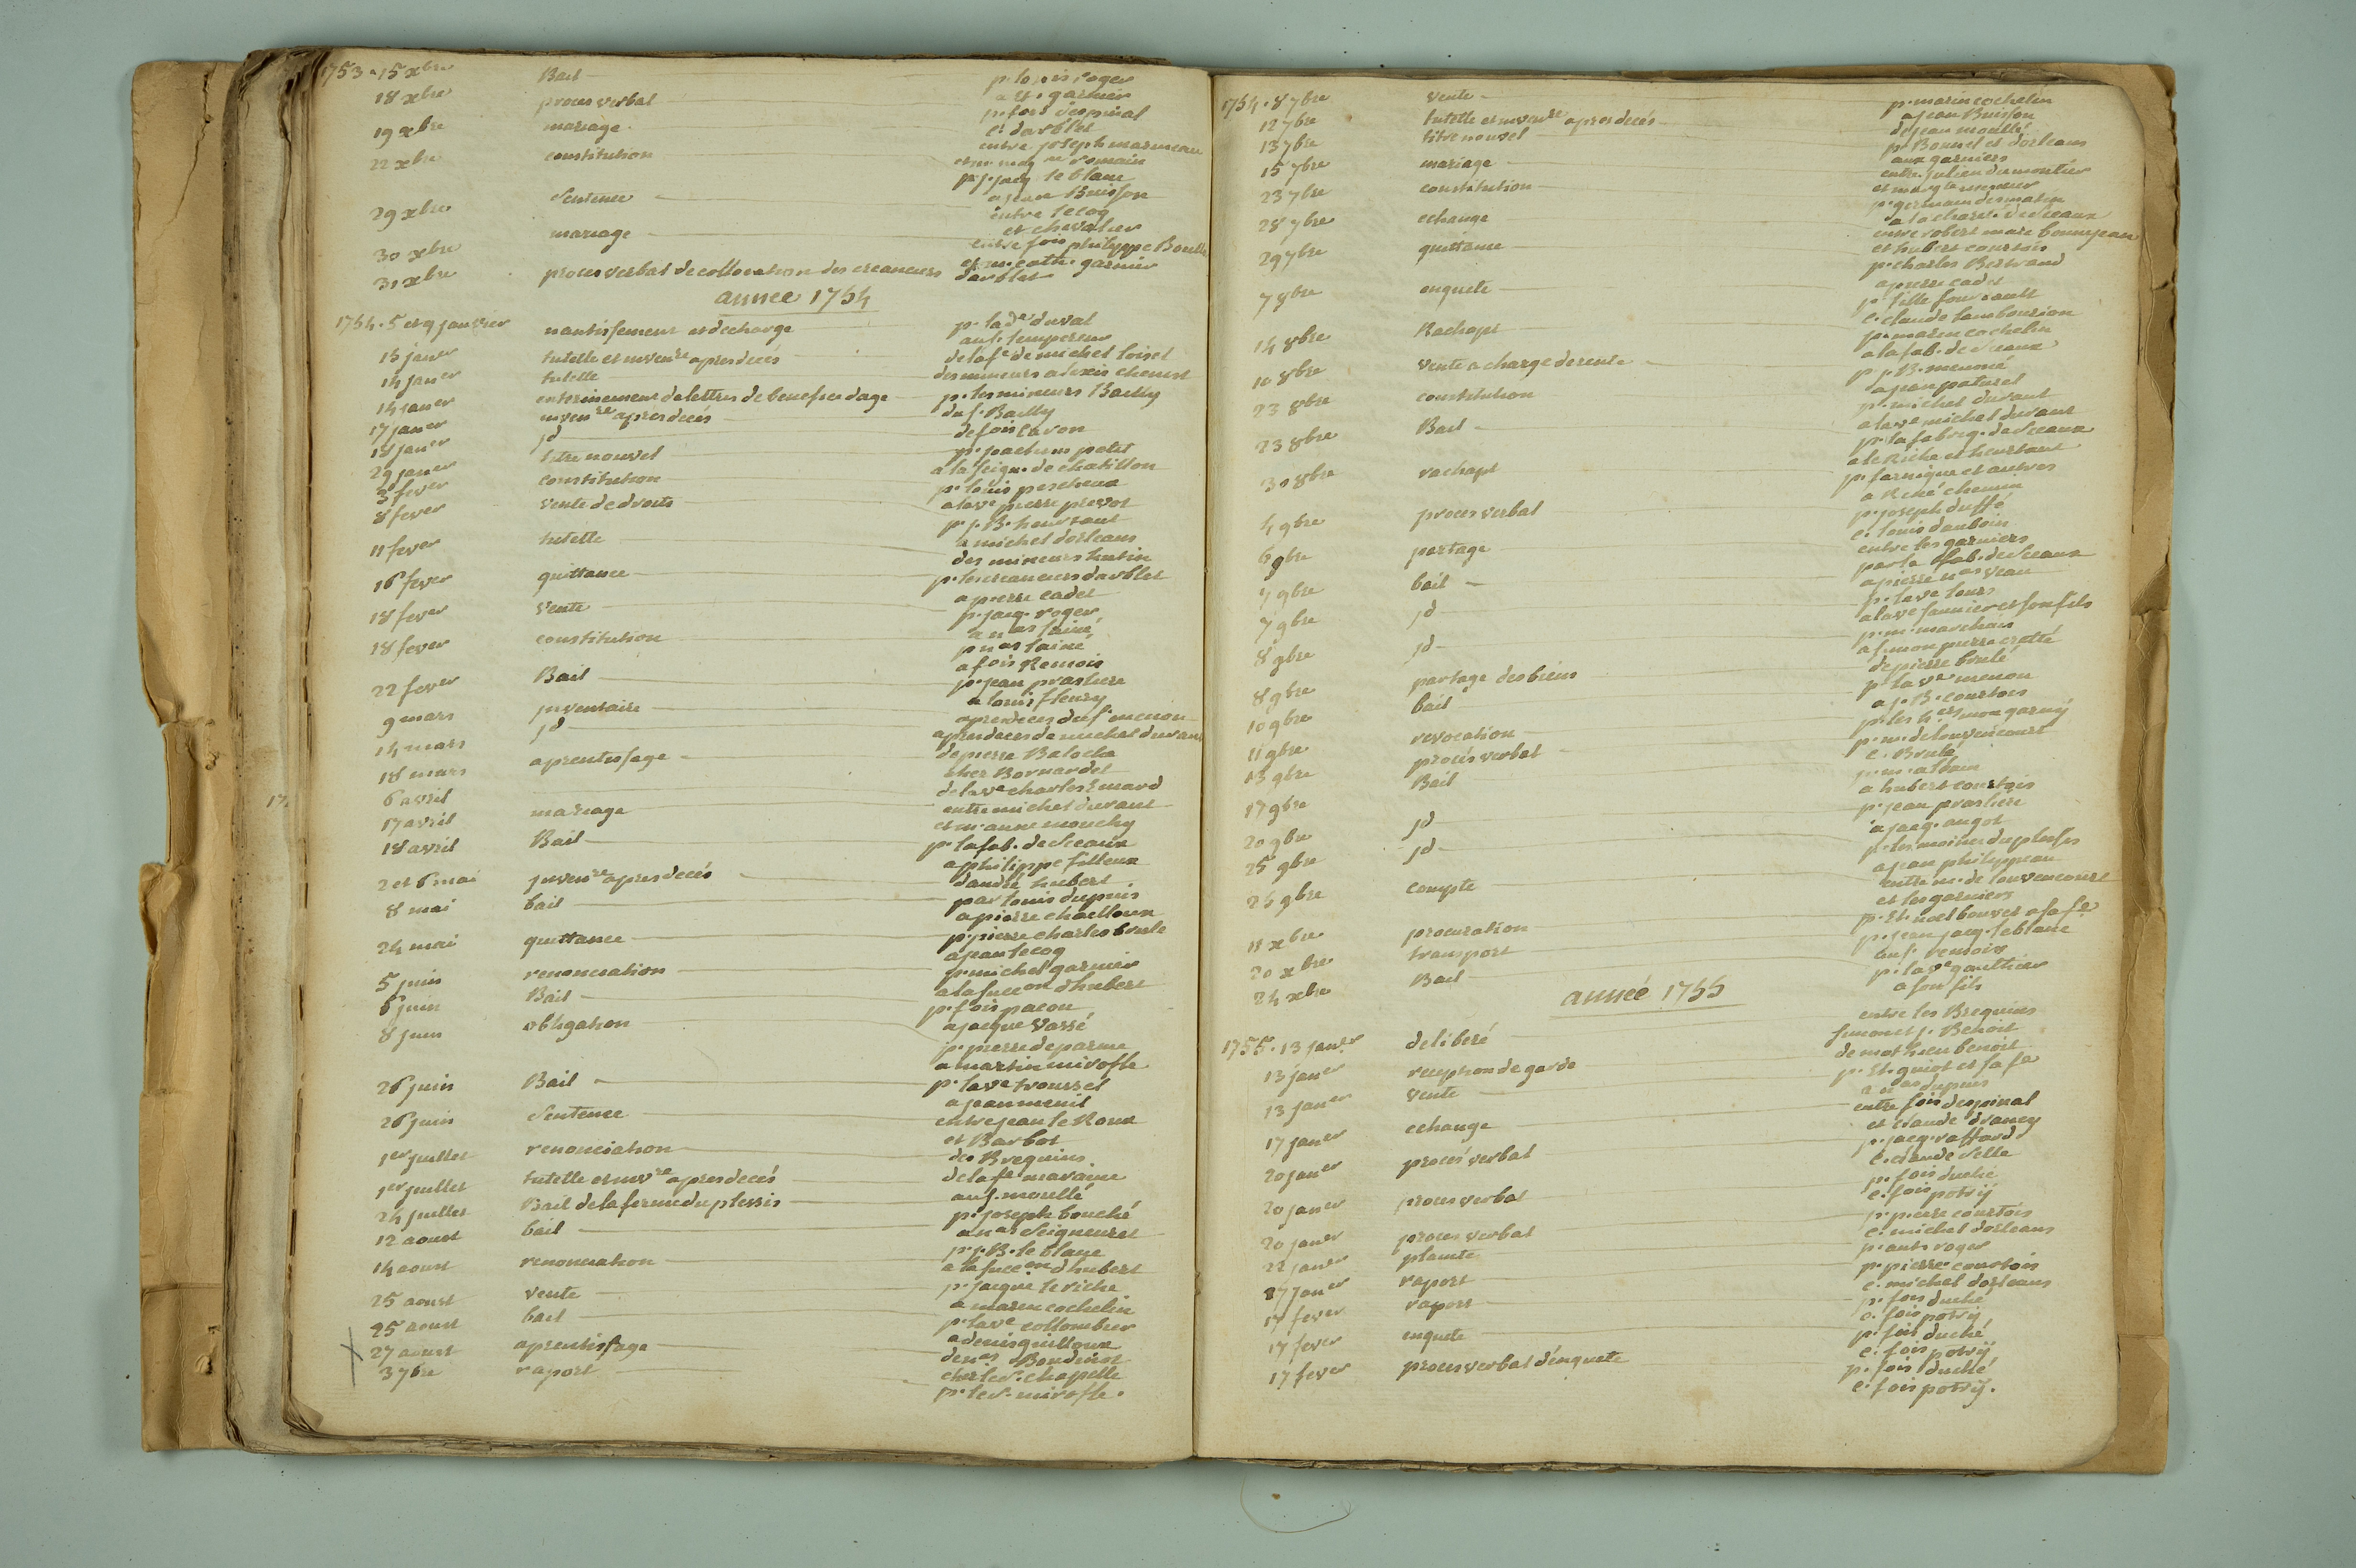 1753. 15 xbre Bail p. louis roger
a et. garnier
18 xbre proces verbal p. fois despinal
c. darblet
19 xbre mariage entre joseph marineau
et m. marg romain
22 xbre constitution p. j. jacq le blanc
a jean Buisson
Sentence entre lecoq
et chevalier
29 xbre mariage entre fois philippe Boulle
et m. cath. garnier
30 xbre
31 xbre proces verbal de collocation des creanciers darblet
annee 1754
1754. 5 et 9 janvier nantissement et decharge p. la de duval
au s. lempereur
13 janer tutelle et invenre apres decés de la fe de michel loisel
14 janer tutelle des mineurs alexis chenest
14 janer enterinement de lettres de benefice dage p. les mineurs Bailly
17 janer invenre apres decés du s. Bailly
18 janer jd de fois Caron
29 janer titre nouvel p. joachim petit
a la seign. de chatillon
3 fever constitution p. louis percheux
a la ve pierre prevot
8 fever vente de droits p. j. B. heurtaut
a michel dorleans
11 fever tutelle des mineurs hutin
16 fever quittance p. les creanciers darblet
a pierre cadet
18 fever vente p. jacq. roger
a nas lainé
18 fever constitution p nas lainé
a fois Remois
22 fever Bail p. jean prasliere
a louis fleury
9 mars jnventaire apres deces du s. menon
14 mars jd apres deces de michel durant
18 mars aprentissage de pierre Balocha
chez Bornardet
6 avril de la ve charles Emard
17 avril mariage entre michel durant
et m. anne mouchy
18 avril Bail p. la fab. de Sceaux
a philippe filleux
2 et 6 mai jnvenre apres decés d'andré hubert
8 mai bail par louis dupuis
a pierre chailloux
24 mai quittance p. pierre charles brule
a jean lecoq
5 juin renonciation p. michel garnier
a la succon d'hubert
6 juin Bail p. fois pacou
a jacque Vassé
8 juin obligation p. pierre deparme
a martin mirofle
26 juin Bail p. la ve troussel
a jean menil
26 juin Sentence entre jean le Roux
et Barbot
1er juillet renonciation des Brequins
1er juillet tutelle et invre apres decés de la fe maraine
24 juillet Bail de la ferme du plessis au s. morellé
12 aoust bail p. joseph bouché
a nas Seigneuret
14 aoust renonciation p. j. B. le blanc
a la succon d'hubert
25 aoust vente p. jacque le riche
a marin cochelin
25 aoust bail p. la ve collombier
a denis guilloux
27 aoust aprentissage de nas Boudinot
chez le s. chapelle
3 7bre raport p. le s. mirofle.
1754. 8 7bre vente p. marin cochelin
a jean Buisson
12 7bre tutelle et invenre apres decés de jean morellé
13 7bre titre nouvel p. Bonnel et dorleans
aux garniers
15 7bre mariage entre julien dumontier
et margte
23 7bre constitution p. germain desmarin
a la charé. de Sceaux
28 7bre echange entre robert marc bonnejean
et hubert courtois
29 7bre quittance p. charles Bertrand
a pierre cadet
7 8bre enquete p. fourcault
c. claude tambourion
14 8bre Rachapt p. marin cochelin
a la fab. de Sceaux
10 8bre vente a charge de rente p j. B. menoné
a jean paturel
23 8bre constitution p. michel durant
a la ve michel durant
23 8bre Bail p. la fabriq. de Sceaux
a le Riche et heurtaut
30 8bre rachapt p. farnique et autres
a René chemin
4 9bre proces verbal p. joseph duffé
c. louis dauboin
6 9bre partage entre les garniers
7 9bre bail par la fab. de Sceaux
a pierre nas veau
7 9bre jd p. la ve tours
a la ve saunier et son fils
8 9bre jd p. m. marchais
a simon pierre crotté
8 9bre partage des biens de pierre brulé
10 9bre bail p. la ve menon
a j. B. courtois
11 9bre revocation p. les hers mon garny
13 9bre procés verbal p. m. de louvencourt
c. Brulé
17 9bre Bail p. m. albain
a hubert courtois
20 9bre jd p. jean prasliere
a jacq. angot
25 9bre jd p. les moines du plessis
a jean philippeau
26 9bre compte entre m. de louvencourt
et les garniers
11 xbre procuration p. Et. noel bouvet a sa fe
20 xbre transport p. jean jacq. leblanc
au s. remois
24 xbre Bail p. la ve gaultier
a son fils
année 1755
1755. 13 janer deliberé entre les Brequins
simon et j. Benoit
13 janer reception de garde de mathieu benoit
13 janer vente p. Et. guiot et sa fe
a nas dupuis
17 janer echange entre fois despinal
et claude drancy
20 janer procés verbal p. jacq. raffard
c. claude velle
20 janer proces verbal p. fois duché
c. fois potvij
20 janer proces verbal p. pierre courtois
c. michel dorleans
22 janer plainte p. ant. roger
27 janer raport p. pierre courtois
c. michel dorleans
17 fever raport p. fois duché
c. fois potvij
17 fever enquete p. fois duché
c. fois potvij
17 fever proces verbal d'enquete p. fois duché
c. fois potvij.